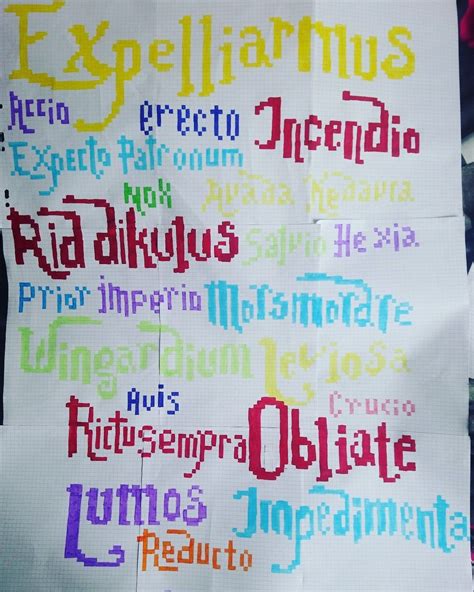 Expelliarmus
Accio erecto Incendio
Expecto Patronum
Nox Avada Kedavra
Riddikulus Salvio Hexia
Prior Imperio Morsmordre
Wingardium Leviosa
Avis Crucio
Rictusempra Obliate
Lumos Impedimenta
Reducto